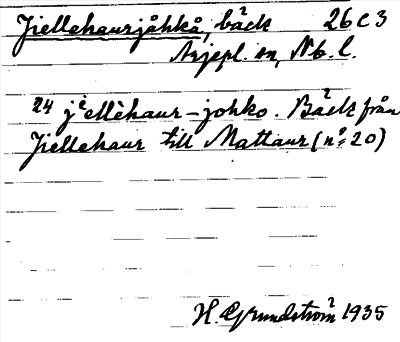 Jiellehaurjåhkå, bäck 26 C 3
Arjepl. sn, Nb. l.
24 jiellèhaur-johko. Bäck från
Jiellehaur till Mattaur (nº 20)
H. Grundström 1935